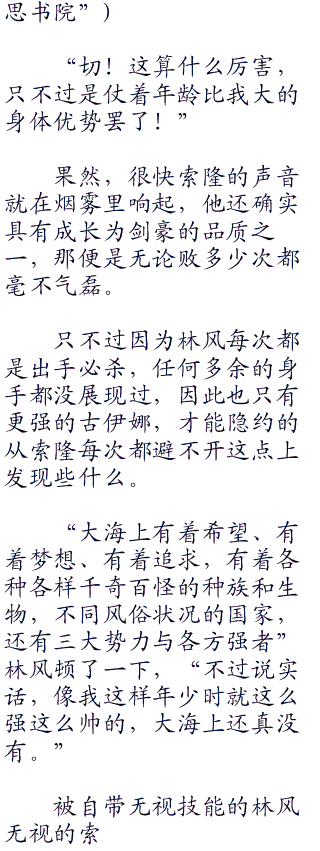 思书院”)
“切！这算什么厉害，
只不过是仗着年龄比我大的
身体优势罢了！”
果然，很快索隆的声音
就在烟雾里响起，他还确实
具有成长为剑豪的品质之
一，那便是无论败多少次都
毫不气磊。
只不过因为林风每次都
是出手必杀，任何多余的身
手都没展现过，因此也只有
更强的古伊娜，才能隐约的
从索隆每次都避不开这点上
发现些什么。
“大海上有着希望、有
着梦想、有着追求，有着各
种各样千奇百怪的种族和生
物，不同风俗状况的国家，
还有三大势力与各方强者”
林风顿了一下，“不过说实
话，像我这样年少时就这么
强这么帅的，大海上还真没
有。”
被自带无视技能的林风
无视的索